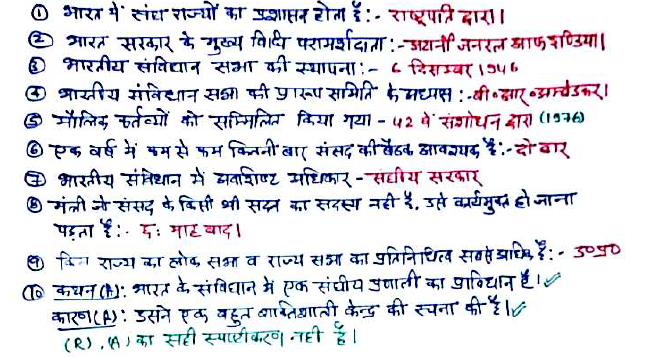 ① भारत में संघ राज्यों का प्रशासन होता है:- राष्ट्रपति द्वारा।
② भारत सरकार के मुख्य विधि परामर्शदाता:- अटार्नी जनरल आफ इण्डिया।
③ भारतीय संविधान सभा की स्थापना:- 6 दिसम्बर 1946
④ भारतीय संविधान सभा की प्रारूप समिति के अध्यक्ष:- बी॰आर॰अम्बेडकर।
⑤ मौलिक कर्तव्यों को सम्मिलित किया गया - 42 वें संशोधन द्वारा (1976)
⑥ एक वर्ष में कम से कम कितनी बार संसद की बैठक आवश्यक है:- दो बार
⑦ भारतीय संविधान में अवशिष्ट अधिकार - संघीय सरकार
⑧ मंत्री जो संसद के किसी भी सदन का सदस्य नही है, उसे कार्यमुक्त हो जाना
पड़ता है:- छः माह बाद।
⑨ किस राज्य का लोक सभा व राज्य सभा का प्रतिनिधित्व सबसे अधिक है:- उ०प्र०
⑩ कथन (A): भारत के संविधान में एक संघीय प्रणाली का प्राविधान है।✓
कारण (R): इसने एक बहुत शक्तिशाली केन्द्र की रचना की है।✓
(R), (A) का सही स्पष्टीकरण नही है।